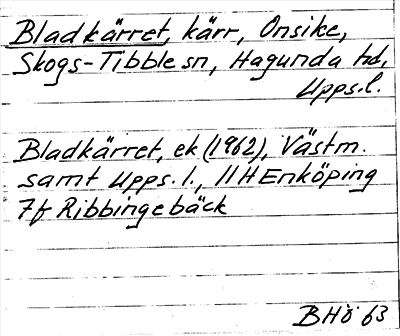 Bladkärret, kärr, Onsike,
Skogs-Tibble sn, Hagunda hd,
Upps.l.
Bladkärret, ek (1962), Västm.
samt Upps. l., 11H Enköping
7f Ribbingebäck
BHö 63